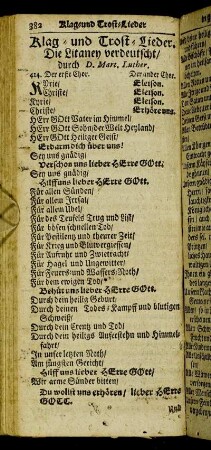 382 Klag- und Trost-Lieder
Klag- und Trost-Lieder.
Die Litaney verdeutscht/
durch D. Mart. Luther.
414. Der erste Chor. Der ander Chor.
KYrie/ Eleison.
Christe/ Eleison.
Kyrie/ Eleison.
Christe/ Erhöre uns.
HErr GOtt Vater im Himmel/
HErr GOtt Sohn der Welt Heyland/
HErr GOtt Heiliger Geist/
Erbarm dich über uns!
Sey uns gnädig/
Verschon uns lieber HErre GOtt.
Sey uns gnädig/
Hilff uns lieber HErre GOtt.
Für allen Sünden/
Für allem Irrsal/
Für allen Übel/
Für des Teufels Trug und List/
Für bösen schnellen Tod/
Für Pestilentz und theurer Zeit/
Für Krieg und Blutvergiessen/
Für Aufruhr und Zwietracht/
Für Hagel und Ungewitter/
Für Feuers- und Wassers-Noth/
Für dem ewigen Tod/
Behüt uns lieber HErre GOtt.
Durch dein heilig Geburt/
Durch deinen Todes-Kampff und blutigen
Schweiß/
Durch dein Creutz und Tod/
Durch dein heiligs Auferstehn und Himmel-
fahrt/
In unser letzten Noth/
Am jüngsten Gericht/
Hilff uns lieber HErre GOtt/
Wir arme Sünder bitten/
Du wollst uns erhören/ lieber HErre
GOTT.
Und